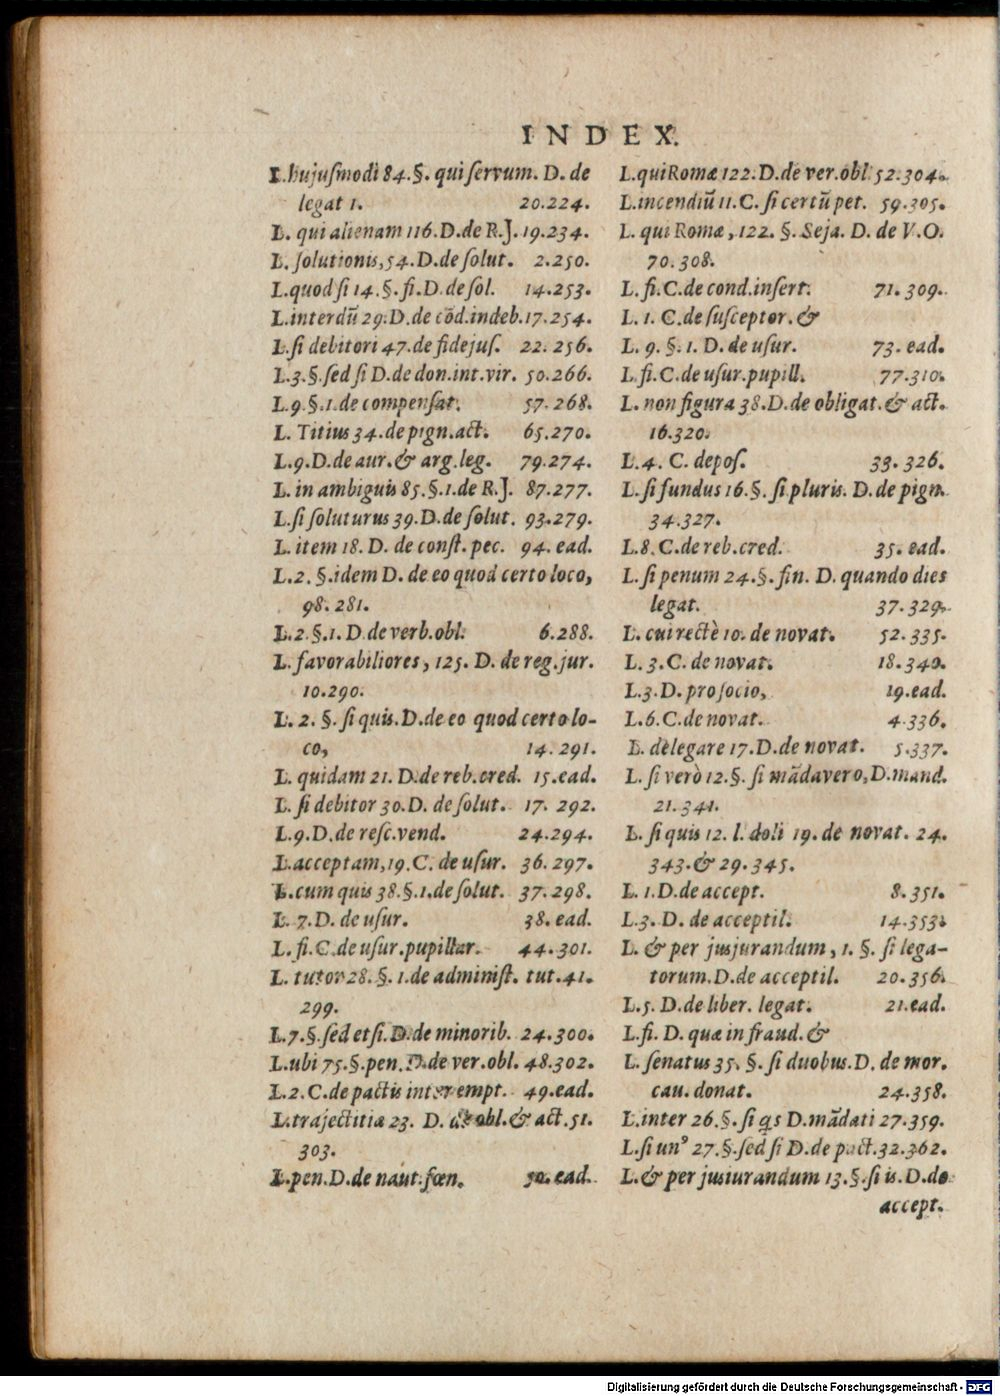 INDEX.
L.hujuſmodi 84.§. qui ſervum. D. de
legat 1. 20.224.
L. qui alienam 116.D.de R.J. 19.234.
L. ſolutionis,54.D.de ſolut. 2.250.
L.quod ſi 14.§.ſi.D.de ſol. 14.253.
L.interdũ 29.D.de cõd.indeb.17.254.
L.ſi debitori 47.de fidejuſ. 22.256.
L.3.§.ſed ſi D.de don.int.vir. 50.266.
L.9.§.1.de compenſat. 57.268.
L. Titius 34.de pign.act. 65.270.
L.9.D.de aur.& arg.leg. 79.274.
L. in ambiguis 85.§.1.de R.J. 87.277.
L.ſi ſoluturus 39.D.de ſolut. 93.279.
L. item 18. D. de conſt. pec. 94. ead.
L.2. §.idem D. de eo quod certo loco,
98. 281.
L.2.§.1. D de verb.obl. 6.288.
L. favorabiliores, 125. D. de reg.jur.
10.290.
L. 2. §. ſi quis. D.de eo quod certo lo-
co, 14. 291.
L. quidam 21. D.de reb.cred. 15.ead.
L. ſi debitor 30.D. de ſolut. 17. 292.
L.9.D.de reſc.vend. 24.294.
L.acceptam,19.C. de uſur. 36.297.
L.cum quis 38.§.1.de ſolut. 37.298.
L. 7.D. de uſur. 38. ead.
L. fi.C.de uſur.pupillar. 44.301.
L. tutor 28. §. 1.de adminiſt. tut.41.
299.
L.7.§.ſed etſi.D.de minorib. 24.300.
L.ubi 75.§.pen.D.de ver.obl. 48.302.
L.2.C.de pactis inter empt. 49.ead.
L.trajectitia 23. D. de obl.& act.51.
303.
L.pen.D.de naut.fœn. 50.ead.
L.qui Romæ 122.D.de ver.obl.52.304.
L.incendiũ 11.C. ſi certũ pet. 59.305.
L. qui Romæ,122. §. Seja. D. de V.O.
70.308.
L. fi.C.de cond.inſert. 71.309.
L. 1. C.de ſuſceptor.&
L. 9. §.1. D. de uſur. 73. ead.
L.fi.C.de uſur.pupill. 77.310.
L. non figura 38.D.de obligat.& act.
16.320.
L.4. C. depoſ. 33.326.
L.ſi fundus 16.§. ſi pluris. D.de pign.
34.327.
L.8. C.de reb.cred. 35. ead.
L. ſi penum 24.§. fin. D. quando dies
legat. 37.329.
L. cui rectè 10. de novat. 52.335.
L. 3.C. de novat. 18.340.
L.3.D. pro ſocio, 19.ead.
L.6.C.de novat. 4.336.
L. delegare 17.D.de novat. 5.337.
L. ſi verò 12.§. ſi mãdavero,D.mand.
21.341.
L. ſi quis 12. l. doli 19. de novat. 24.
343.& 29.345.
L. 1.D.de accept. 8.351.
L.3. D. de acceptil. 14.353.
L. & per jusjurandum, 1. §. ſi lega-
torum.D.de acceptil. 20.356.
L.5. D.de liber. legat. 21.ead.
L.fi. D. quæ in fraud.&
L. ſenatus 35. §. ſi duobus.D. de mor.
cau. donat. 24.358.
L.inter 26.§.ſi qs D.mãdati 27.359.
L.ſi unꝰ 27.§.ſed ſi D.de pact.32.362.
L.& per jusiurandum 13.§.ſi is.D.de
accept.
Digitalisierung gefördert durch die Deutsche Forschungsgemeinschaft - DFG